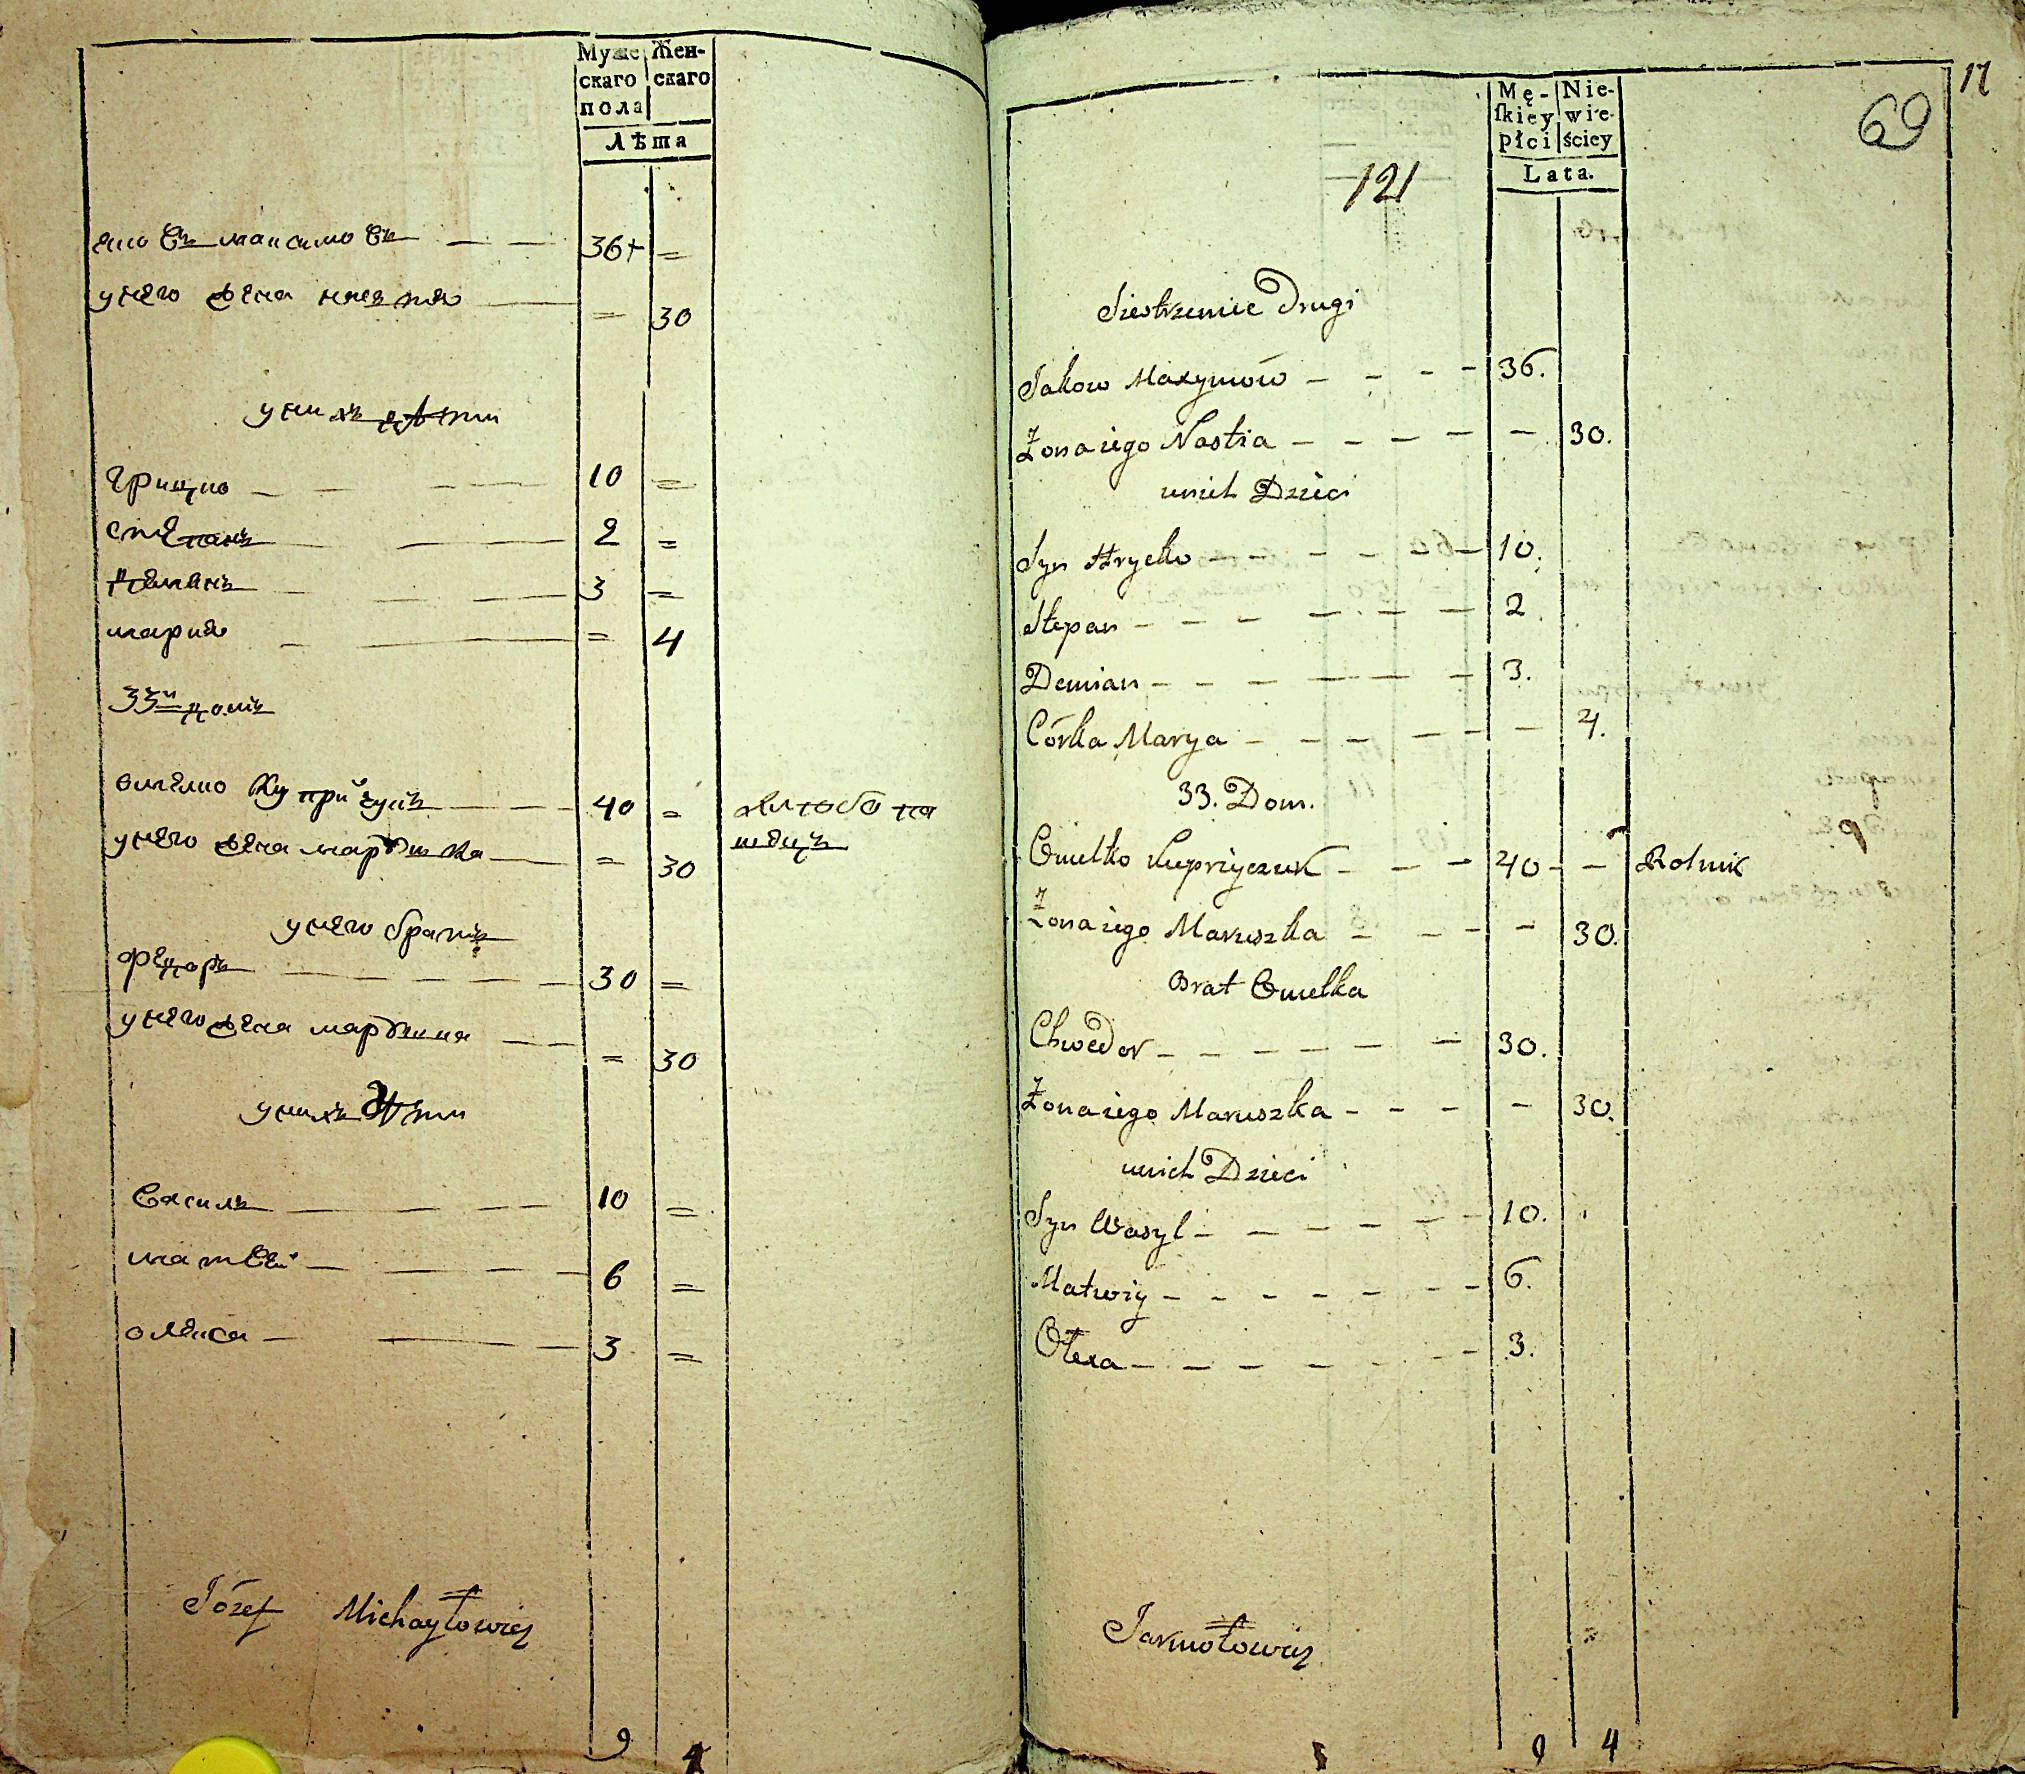 Муже Жен-
скаго скаго
пола
Лѣта
яковъ максимовъ — — 36+ =
унего жена настя — = 30
унихъ дѣти
грицко — — — 10 =
степанъ — — 2 =
демянъ — — — 3 =
мария — — = 4
33й домъ
омелко Купричукъ — — 40 = хлѣбопа
шецъ
унего жена марушка — = 30
унего братъ
федоръ — — — — 30 =
унего жена марушка — — = 30
унихъ дѣти
василъ — — — 10 =
матвей — — — — 6 =
олекса — — — 3 =
Józef Michayłowicz
9 4
17
69
Mę- Nie-
ſkiey wie-
płci ściey
Lata.
121
Siestrzeniec Drugi
Jakow Maxymów — — — — 36.
Żona iego Nastia — — — — — 30.
unich Dzieci
Syn Hrycko — — — — — — 10.
Stepan — — — — — — 2
Demian — — — — — — 3.
Córka Marya — — — — — — 4.
33. Dom.
Omelko Kupriyczuk — — — 40 — — Rolnik
Żona iego Maruszka — — — — 30.
Brat Omelka
Chwedor — — — — — — 30.
Żona iego Maruszka — — — — 30.
unich Dzieci
Syn Wasyl — — — — — — 10.
Matwiy — — — — — — — 6.
Ołexa — — — — — — — 3.
Jarmołowicz
9 4